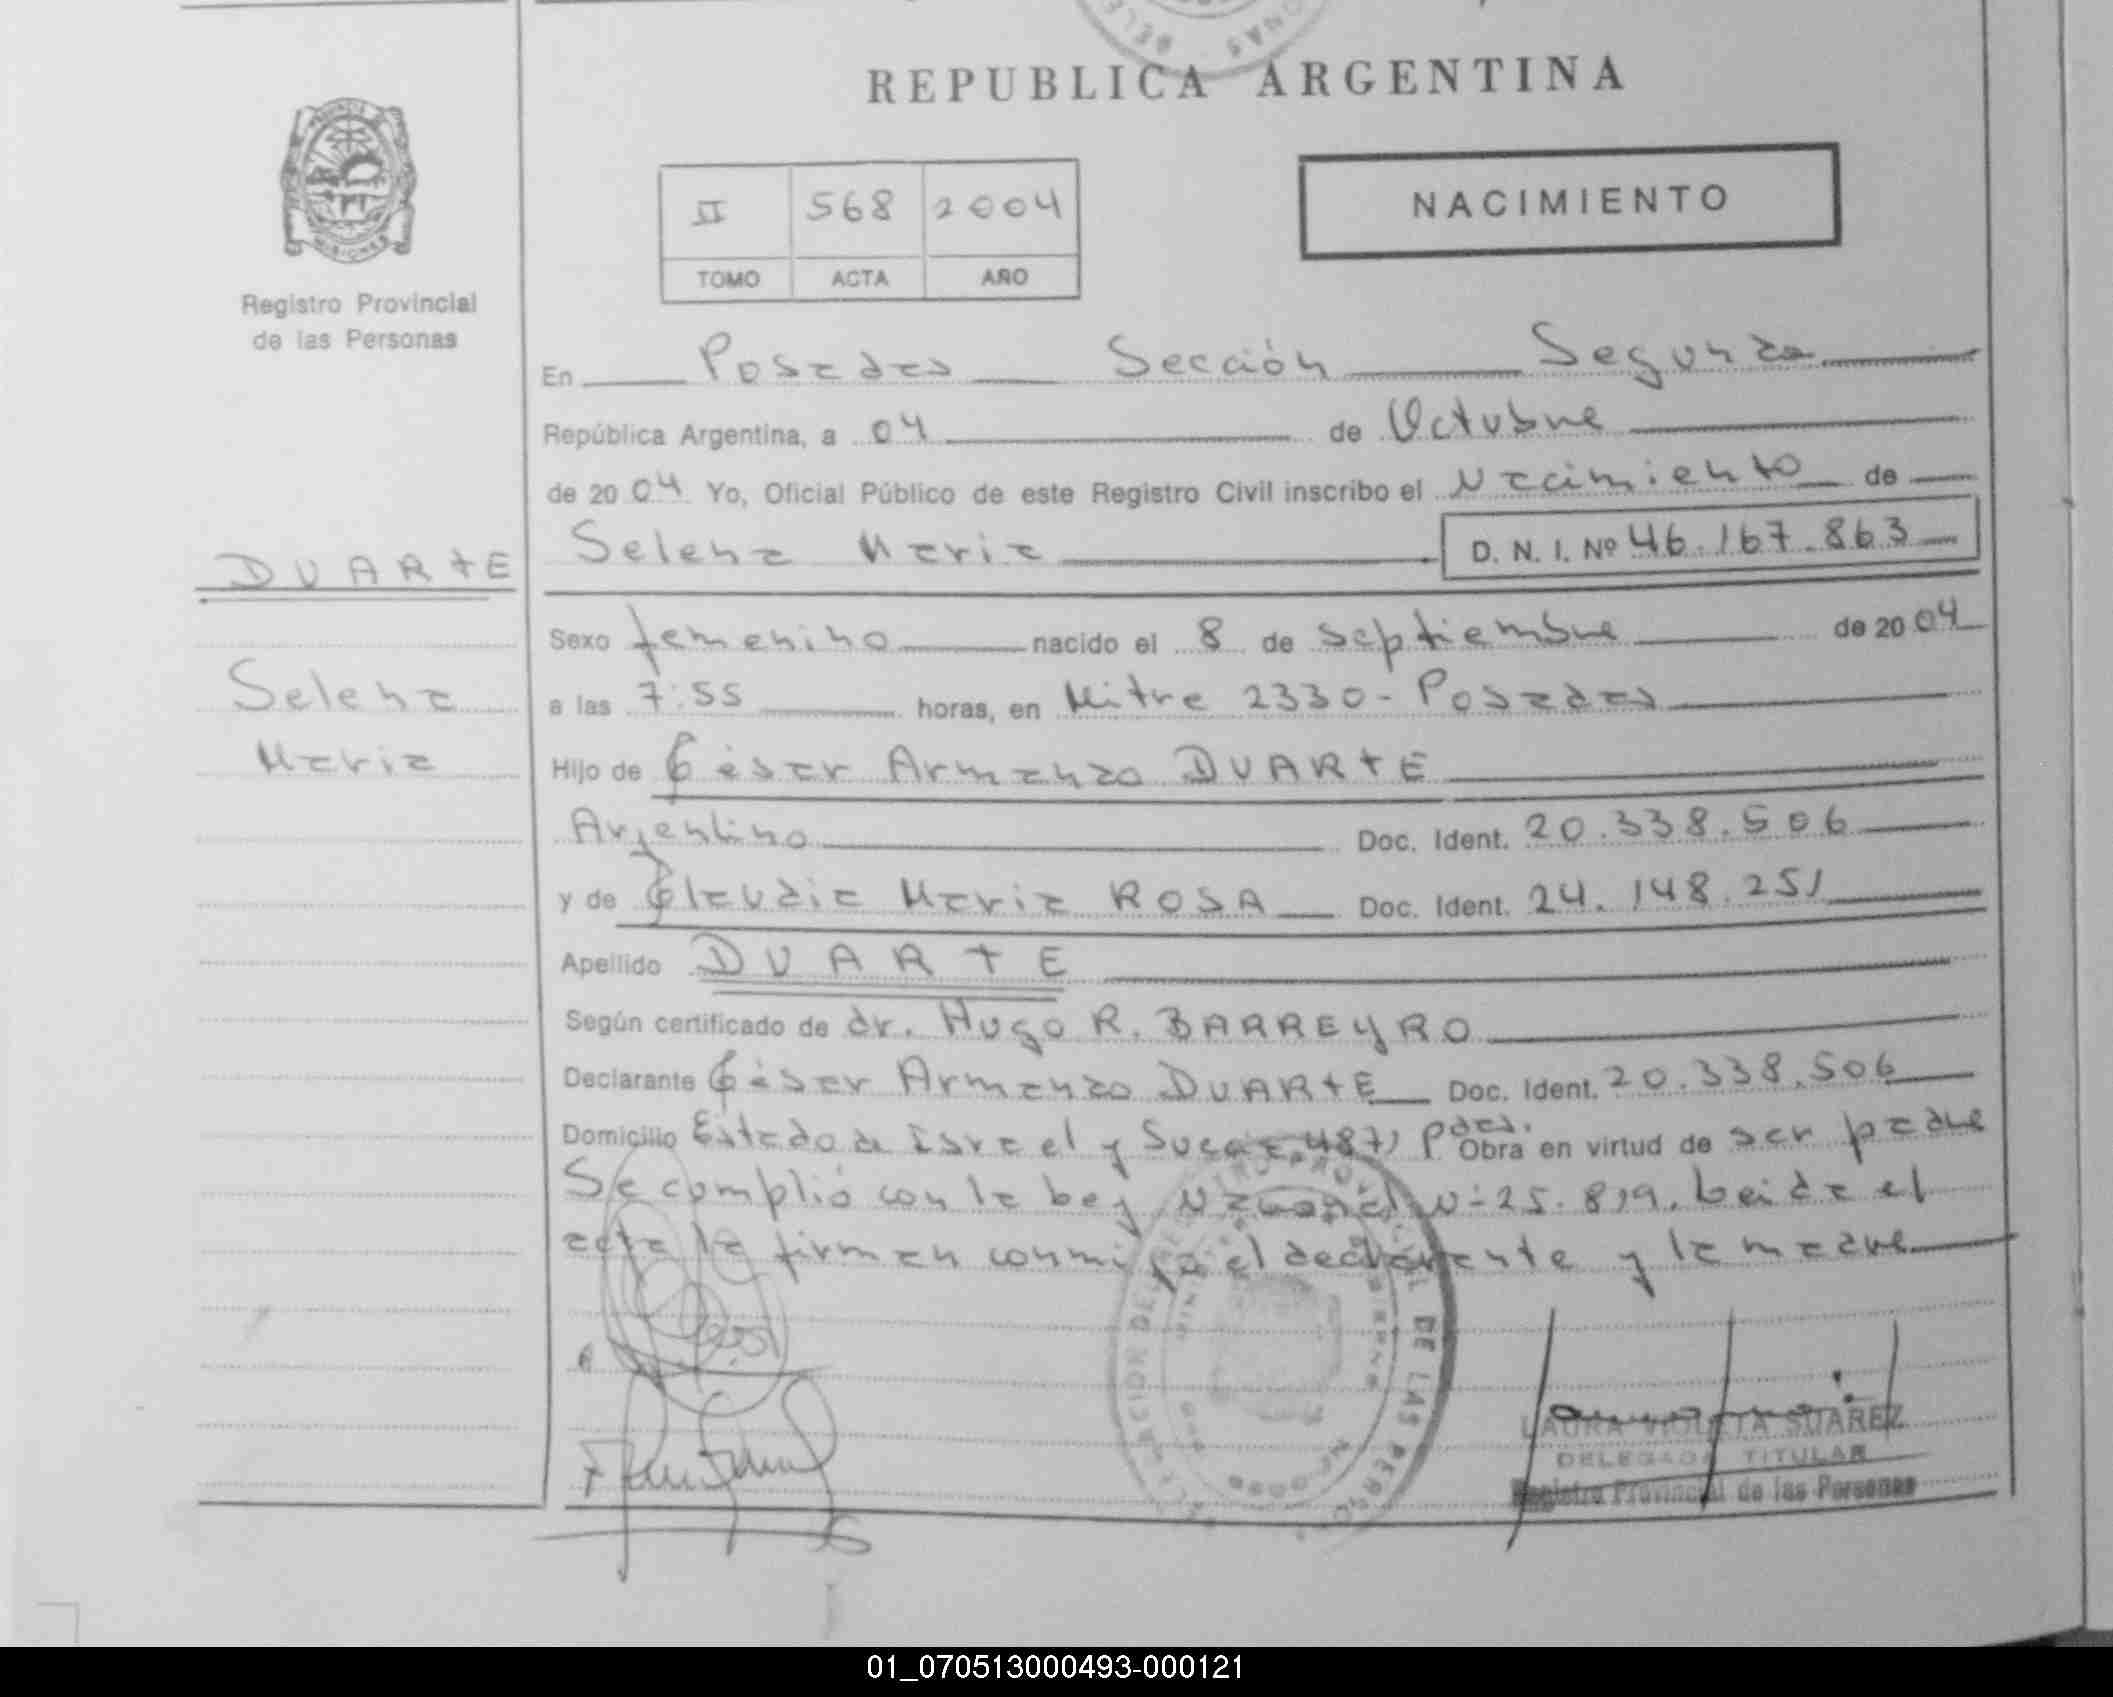 REPUBLICA ARGENTINA
PROVINCIA DE
MISIONES
Registro Provincial
de las Personas
II 568 2004
TOMO ACTA AÑO
NACIMIENTO
En Posadas Sección Segunda
República Argentina, a 04 de Octubre
de 20 04 Yo, Oficial Público de este Registro Civil inscribo el Nacimiento de
DUARTE
Selena Maria
Selena Maria D. N. I. Nº 46.167.863
Sexo femenino nacido el 8 de septiembre de 20 04
a las 7:55 horas, en Mitre 2330 - Posadas
Hijo de César Armando DUARTE
Argentino Doc. Ident. 20.338.506
y de Claudia Maria ROSA Doc. Ident. 24.148.251
Apellido DUARTE
Según certificado de dr. Hugo R. BARREYRO
Declarante César Armando DUARTE Doc. Ident. 20.338.506
Domicilio Estado de Israel y Sucre 487, Pdas. Obra en virtud de ser padre
Se cumplió con la Ley Nacional Nº 25.819. Leida el
acta la firman conmigo el declarante y la madre
LAURA VIOLETA SUAREZ
DELEGADA TITULAR
Registro Provincial de las Personas
01_070513000493-000121